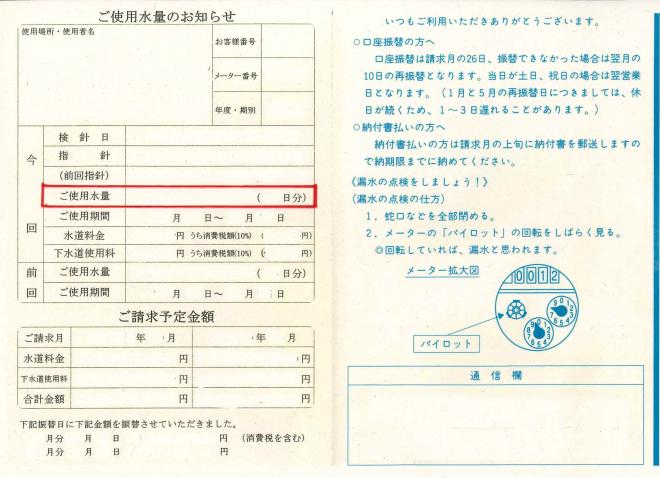 ご使用水量のお知らせ
使用場所・使用者名
お客様番号
メーター番号
年度・期別
今回
検針日
指針
(前回指針)
ご使用水量 ( 日分)
ご使用期間 月 日～ 月 日
水道料金 円 うち消費税額(10%) ( 円)
下水道使用料 円 うち消費税額(10%) ( 円)
前回
ご使用水量 ( 日分)
ご使用期間 月 日～ 月 日
ご請求予定金額
ご請求月 年 月 年 月
水道料金 円 円
下水道使用料 円 円
合計金額 円 円
下記振替日に下記金額を振替させていただきました。
月分 月 日 円 (消費税を含む)
月分 月 日 円
いつもご利用いただきありがとうございます。
○口座振替の方へ
口座振替は請求月の26日、振替できなかった場合は翌月の
10日の再振替となります。当日が土日、祝日の場合は翌営業
日となります。（１月と５月の再振替日につきましては、休
日が続くため、１～３日遅れることがあります。）
○納付書払いの方へ
納付書払いの方は請求月の上旬に納付書を郵送しますの
で納期限までに納めてください。
《漏水の点検をしましょう！》
(漏水の点検の仕方)
１．蛇口などを全部閉める。
２．メーターの「パイロット」の回転をしばらく見る。
◎回転していれば、漏水と思われます。
メーター拡大図
0012
パイロット
通信欄